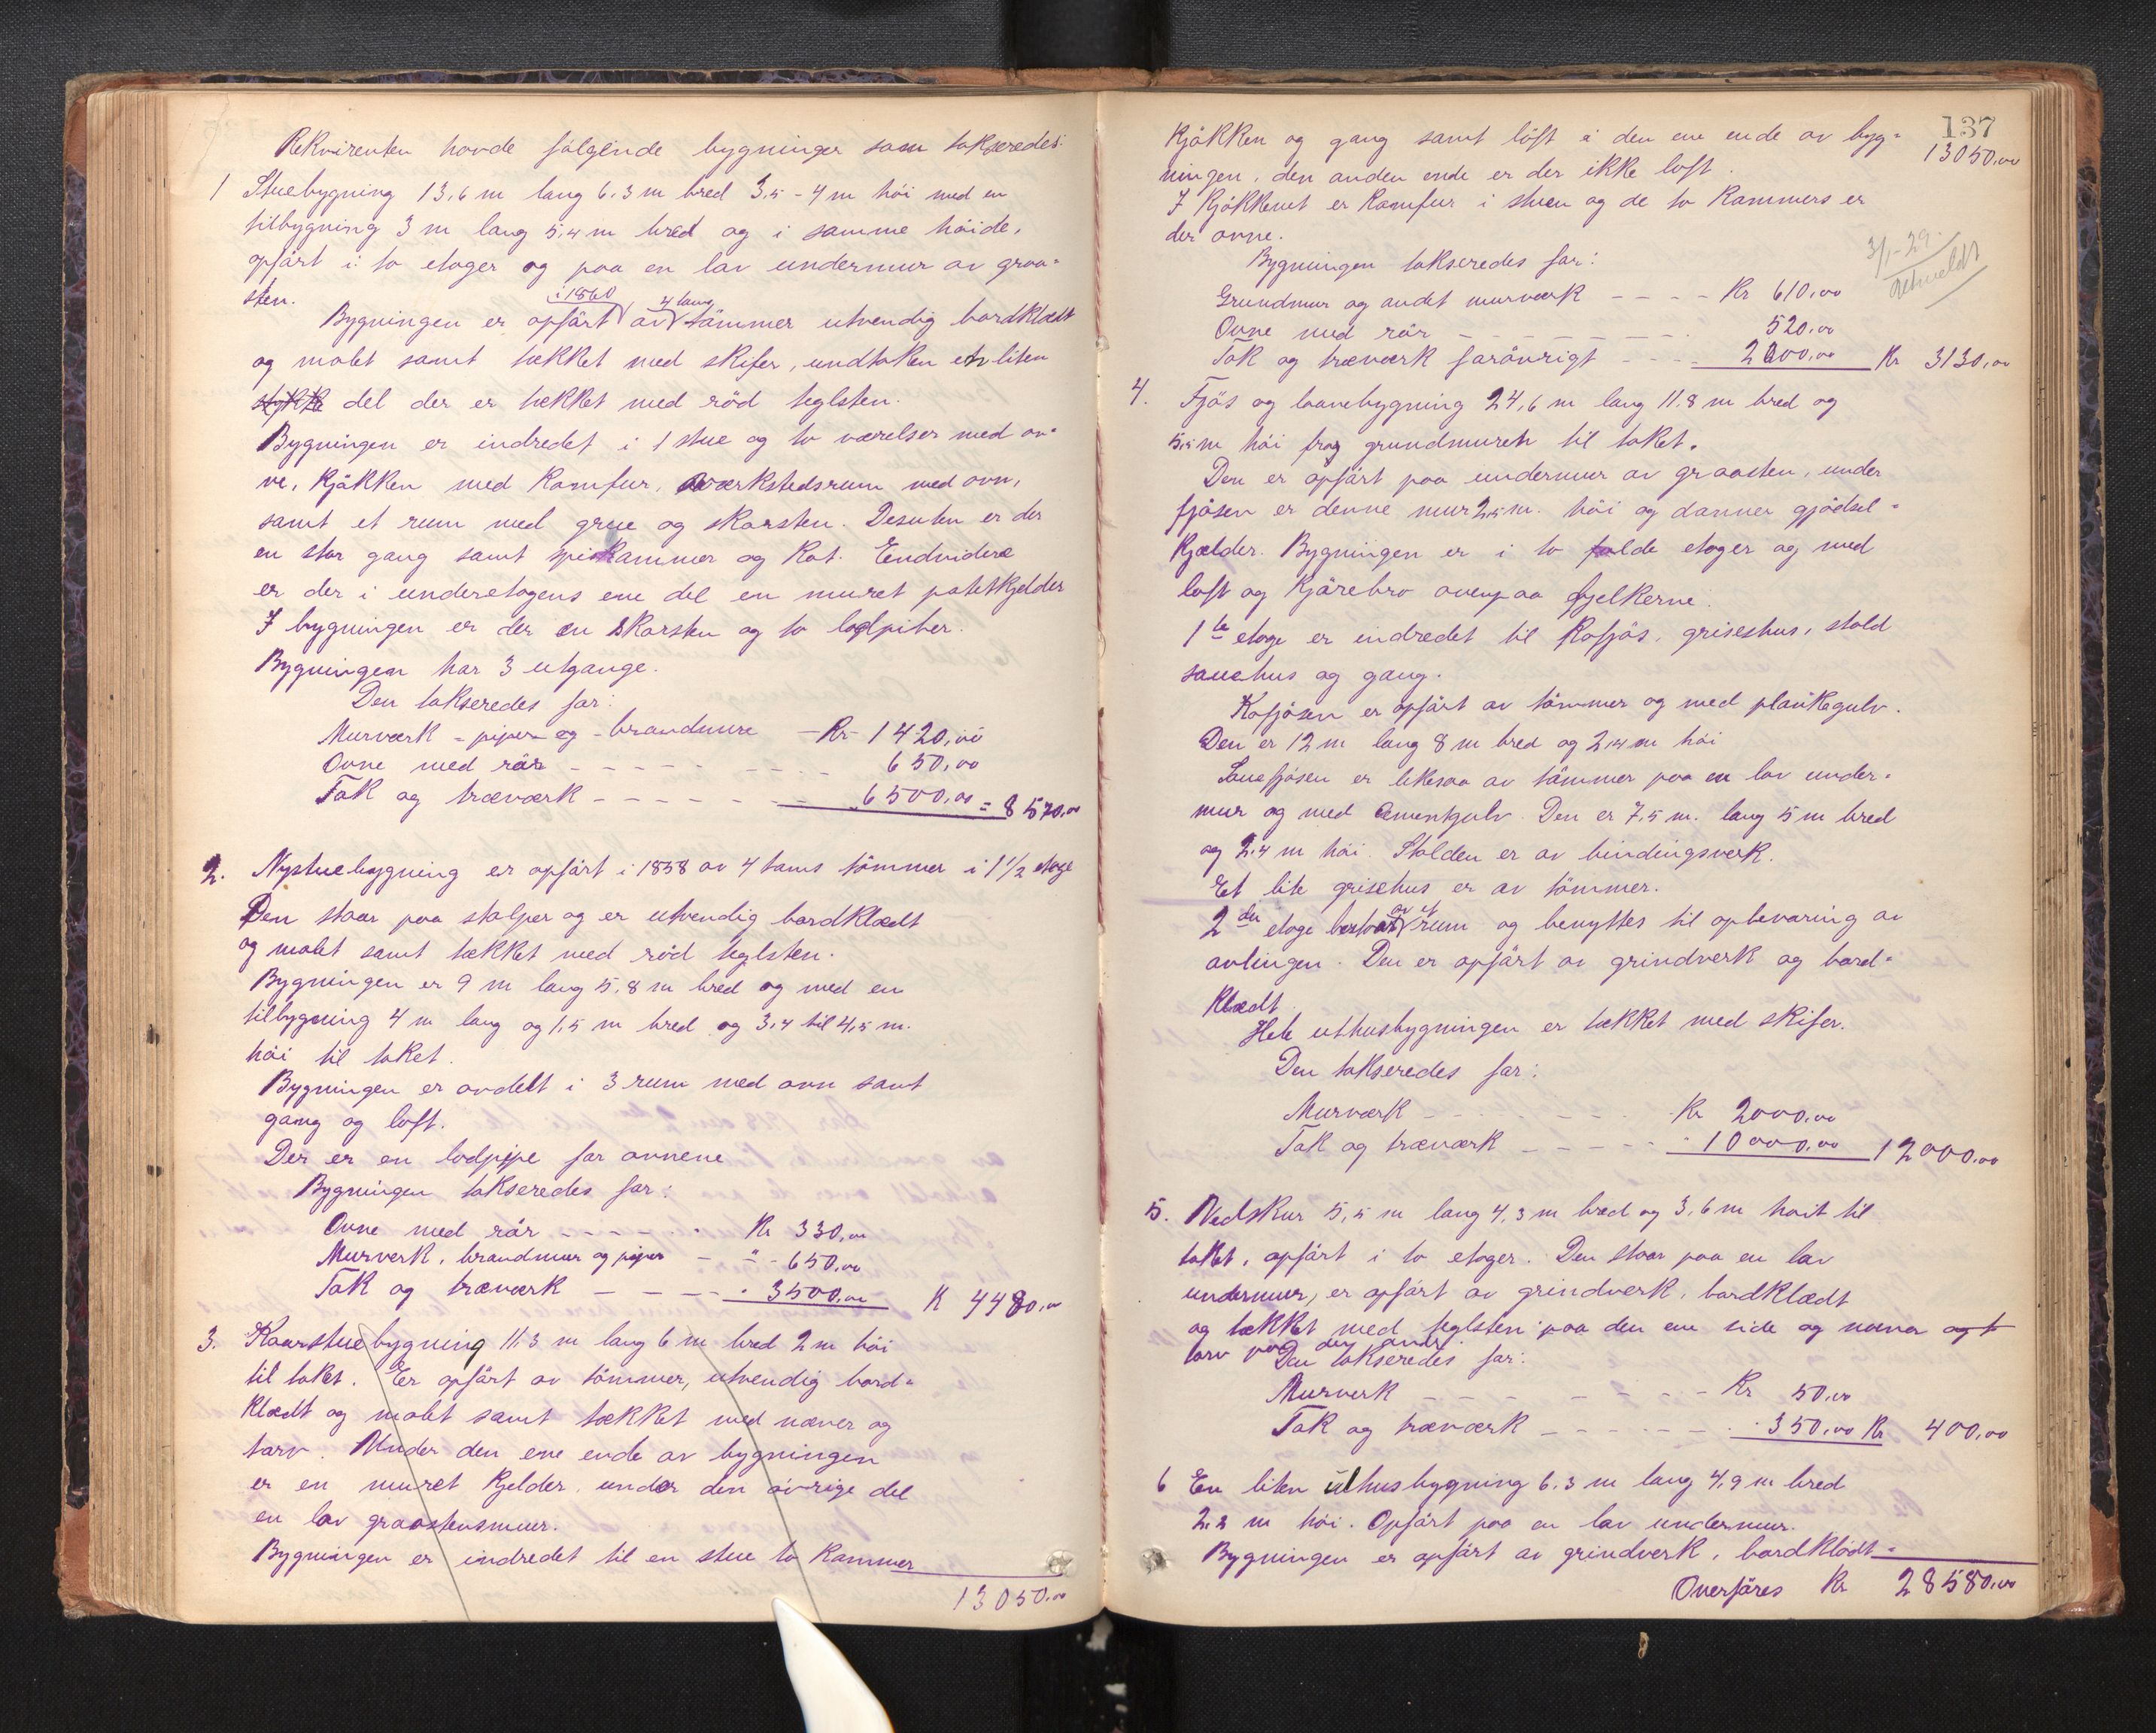 Rekvirenten havde følgende bygninger som takseredes:
1 Stuebygning 13,6 m lang 6.3 m bred 3,5 - 4 m høi med en
tilbygning 3 m lang 5,4 m bred og i samme høide,
opført i to etager og paa en lav undermur av graa=
sten.
i 1860 4 tams
Bygningen er opført av tømmer utvendig bordklædt
og malet samt tækket med skifer, undtaken en liten
stykke del der er tækket med rød teglsten.
Bygningen er indredet i 1 stue og to værelser med ov=
ne, kjøkken med komfur, værkstedsrum med ovn,
samt et rum med grue og skorsten. Desuten er der
en stor gang samt spiskammer og kot. Endvidere
er der i underetagens ene del en muret potetkjelder
I bygningen er der en skorsten og to lodpiber.
Bygningen har 3 utgange.
Den takseredes for:
Murværk - piper og - brandmure - Kr 1420,00
Ovne med rør - - - - - 650,00
Tak og træværk - - - - - 6500,00 = 8570,00
2. Nystuebygning er opført i 1858 av 4 tams tømmer i 1 1/2 etage
Den staar paa stolper og er utvendig bordklædt
og malet samt tækket med rød teglsten.
Bygningen er 9 m lang 5,8 m bred og med en
tilbygning 4 m lang og 1,5 m bred og 3,4 til 4,5 m.
høi til taket.
Bygningen er avdelt i 3 rum med ovn samt
gang og loft.
Der er en lodpipe for ovnene
Bygningen takseredes for:
Ovne med rør - - - - - Kr 330,00
Murverk, brandmur og piper - " - 650,00
Tak og træværk - - - - 3500,00 K 4480,00
3. Kaarstuebygning 11,3 m lang 6 m bred 2 m høi
til taket. Er opført av tømmer, utvendig bord=
klædt og malet samt tækket med næver og
torv. Under den ene ende av bygningen
er en muret kjelder, under den øvrige del
en lav graastensmuur.
Bygningen er indredet til en stue to kammer
13050,00
137
kjøkken og gang samt loft i den ene ende av byg= 13050,00
ningen, den anden ende er der ikke loft.
I kjøkkenet er komfur i stuen og de to kammers er
der ovne.
3/1-29.
Utmeldt
Bygningen takseredes for:
Grundmur og andet murværk - - - - Kr 610,00
Ovne med rør - - - - - 520,00
Tak og træværk forøvrigt - - - - 2000,00 Kr 3130,00
4. Fjøs og laavebygning 24,6 m lang 11,8 m bred og
5,5 m høi fra grundmuren til taket.
Den er opført paa undermur av graasten, under
fjøsen er denne mur 2,5 m. høi og danner gjødsel=
kjelder. Bygningen er i to fulde etager og med
loft og kjørebro ovenpaa bjelkerne.
1ste etage er indredet til kofjøs, grisehus, stald
sauehus og gang.
Kofjøsen er opført av tømmer og med plankegulv.
Den er 12 m lang 8 m bred og 2,4 m høi
Sauefjøsen er likesaa av tømmer paa en lav under=
mur og med cementgulv. Den er 7,5 m. lang 5 m bred
og 2,4 m høi. Stalden er av bindingsverk.
Et lite grisehus er av tømmer.
av et
2den etage bestaar rum og benyttes til opbevaring av
avlingen. Den er opført av grindverk og bord=
klædt.
Hele uthusbygningen er tækket med skifer.
Den takseredes for:
Murværk - - - - - Kr 2000,00
Tak og træværk - - - - - " 10000,00 12000,00
5. Vedskur 5,5 m lang 4,3 m bred og 3,6 m høit til
taket, opført i to etager. Den staar paa en lav
undermuur, er opført av grindverk, bordklædt
og tækket med teglsten paa den ene side og næver og t
torv paa den andre.
Den takseredes for:
Murverk - - - - - Kr 50,00
Tak og træværk - - - - - " 350,00 Kr 400,00
6 En liten uthusbygning 6.3 m lang 4,9 m bred
2.2 m høi. Opført paa en lav undermuur.
Bygningen er opført av grindverk, bordklædt=
Overføres Kr 28580,00